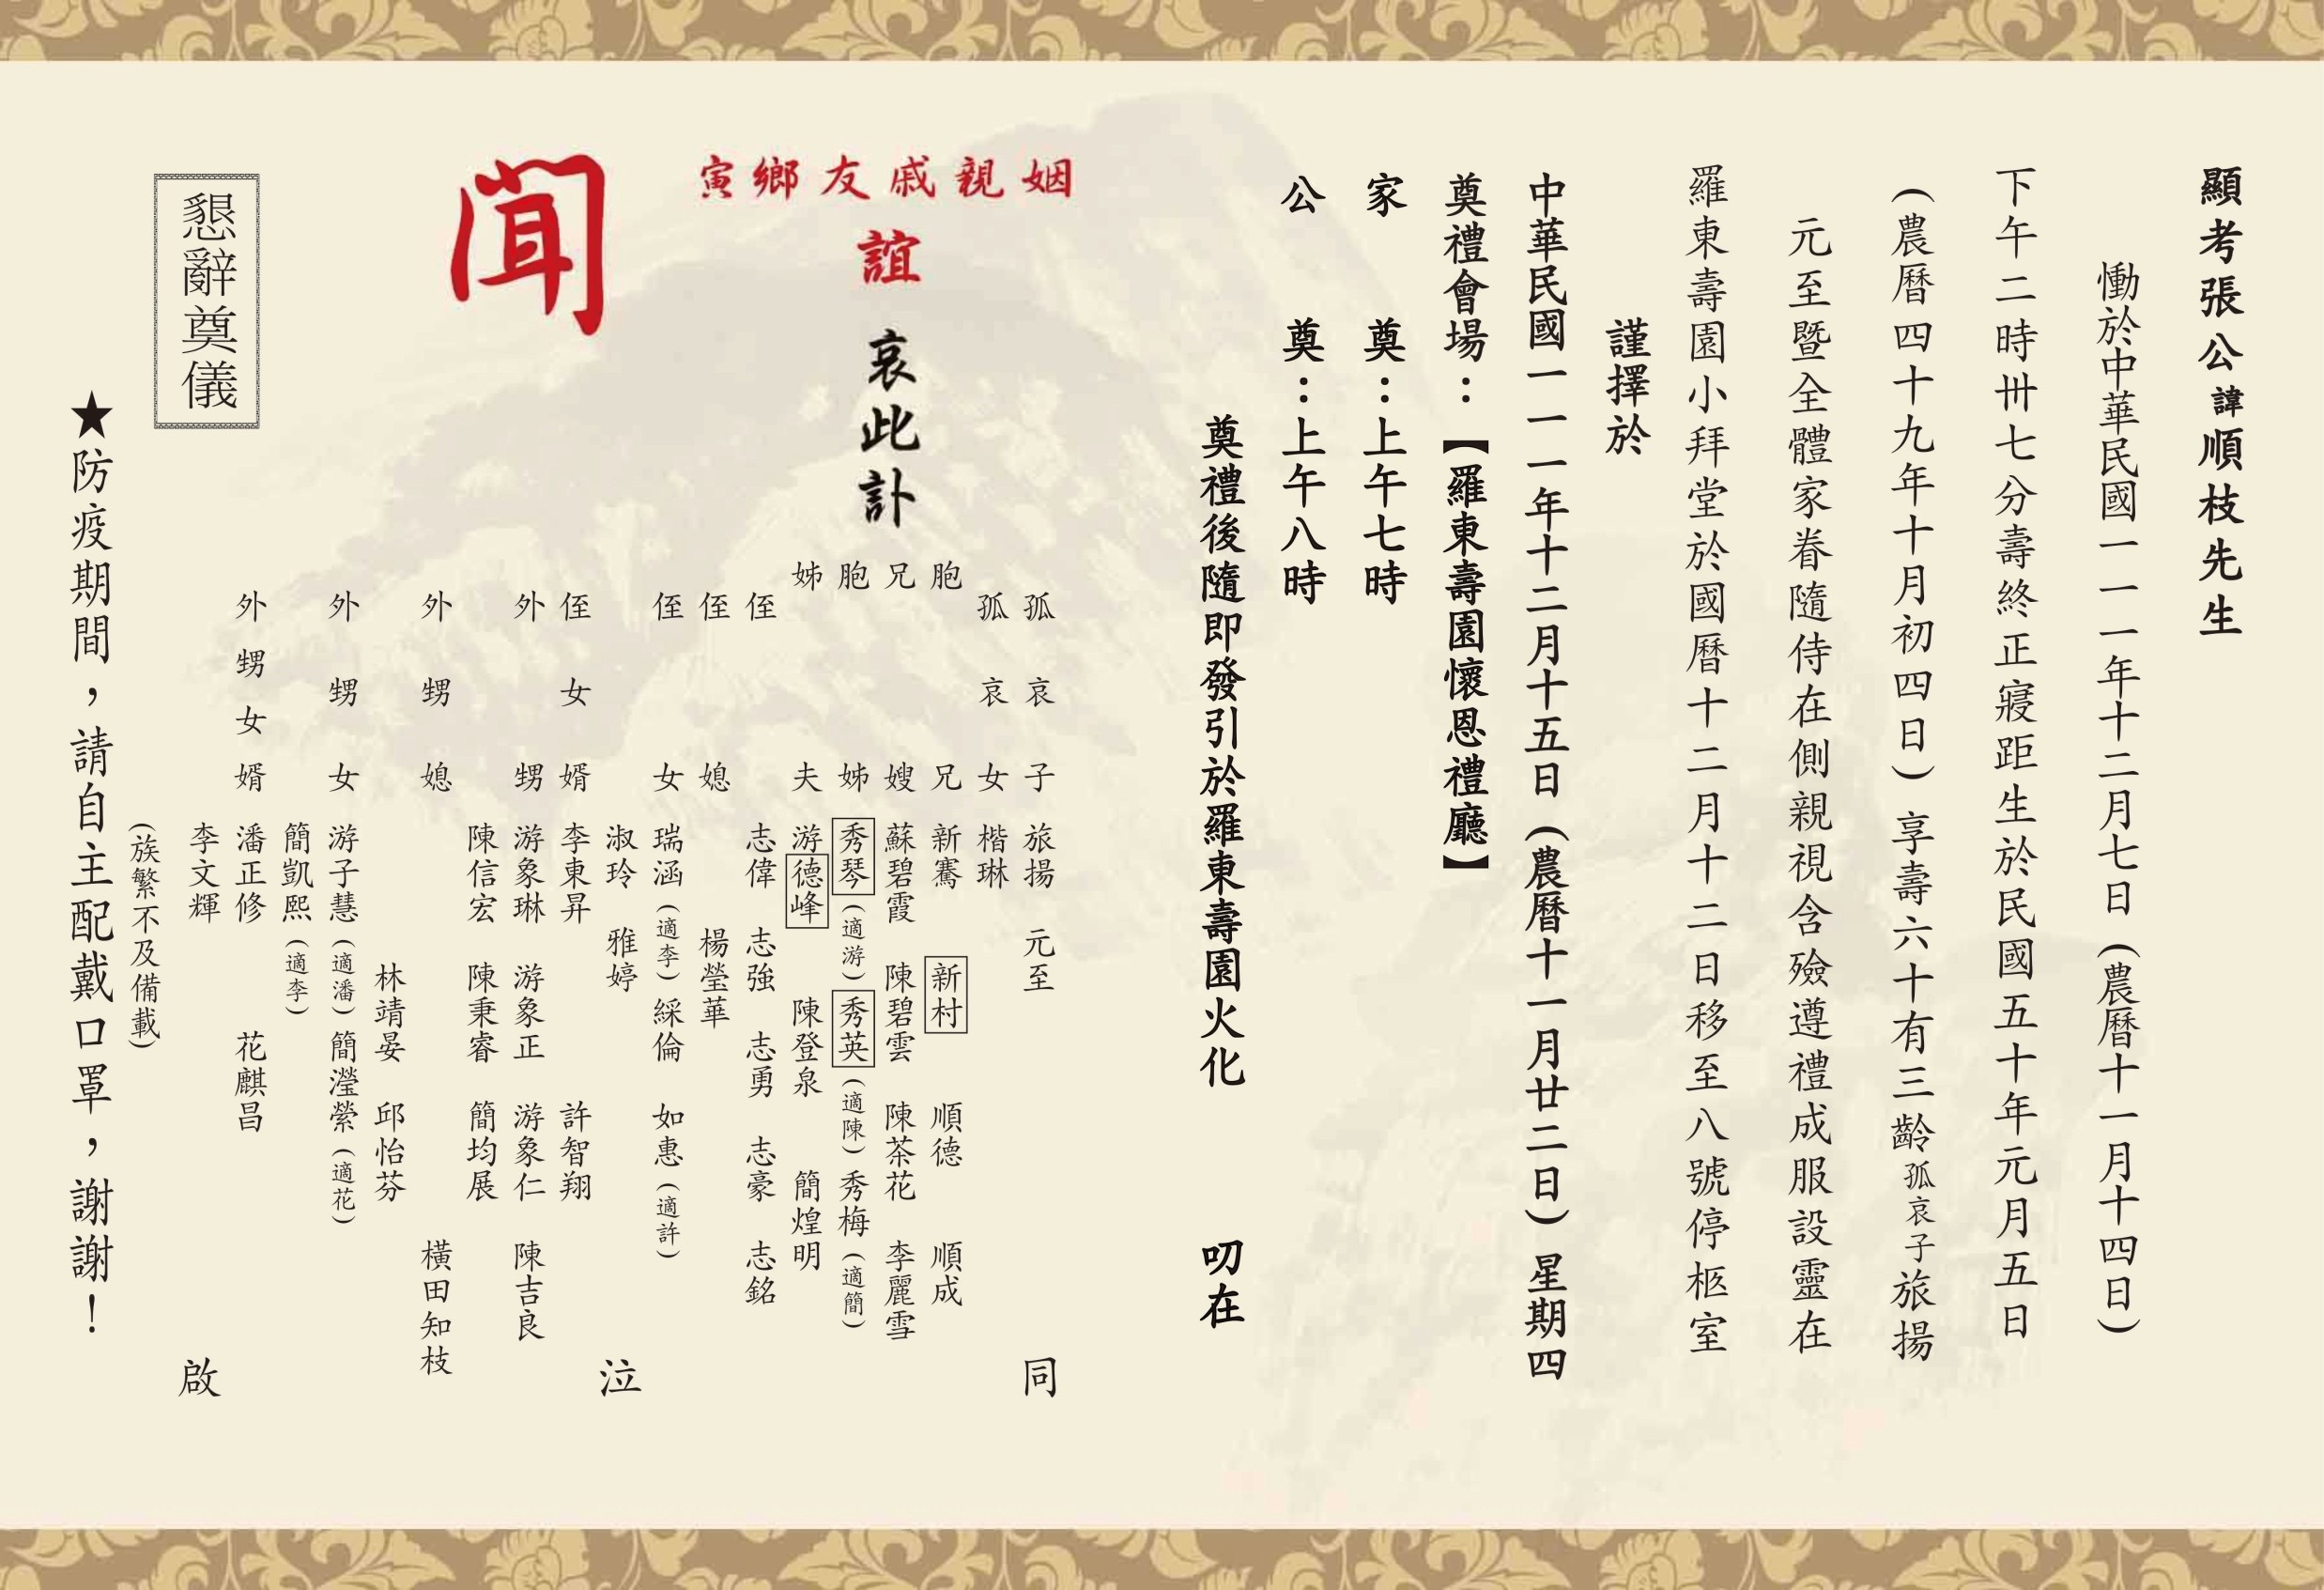 顯考張公諱順枝先生
慟於中華民國一一一年十二月七日(農曆十一月十四日)
下午二時卅七分壽終正寢距生於民國五十年元月五日
(農曆四十九年十月初四日)享壽六十有三齡孤哀子旅揚
元至暨全體家眷隨侍在側親視含殮遵禮成服設靈在
羅東壽園小拜堂於國曆十二月十二日移至八號停柩室
謹擇於
中華民國一一一年十二月十五日(農曆十一月廿二日)星期四
奠禮會場：【羅東壽園懷恩禮廳】
家奠：上午七時
公奠：上午八時
奠禮後隨即發引於羅東壽園火化 叨在
姻親戚友鄉寅
誼
哀此訃
聞
孤哀子 旅揚 元至 同
孤哀女 楷琳
胞兄 新騫 新村 順德 順成
兄嫂 蘇碧霞 陳碧雲 陳茶花 李麗雪
胞姊 秀琴(適游) 秀英(適陳) 秀梅(適簡)
姊夫 游德峰 陳登泉 簡煌明
侄 志偉 志強 志勇 志豪 志銘
侄媳 楊瑩華
侄女 瑞涵(適李) 綵倫 如惠(適許)
淑玲 雅婷 泣
侄女婿 李東昇 許智翔
外甥 游象琳 游象正 游象仁 陳吉良
陳信宏 陳秉睿 簡均展
外甥媳 橫田知枝
林靖晏 邱怡芬
外甥女 游子慧(適潘) 簡瀅縈(適花)
簡凱熙(適李)
外甥女婿 潘正修 花麒昌
李文輝 啟
(族繁不及備載)
懇辭奠儀
★防疫期間，請自主配戴口罩，謝謝！